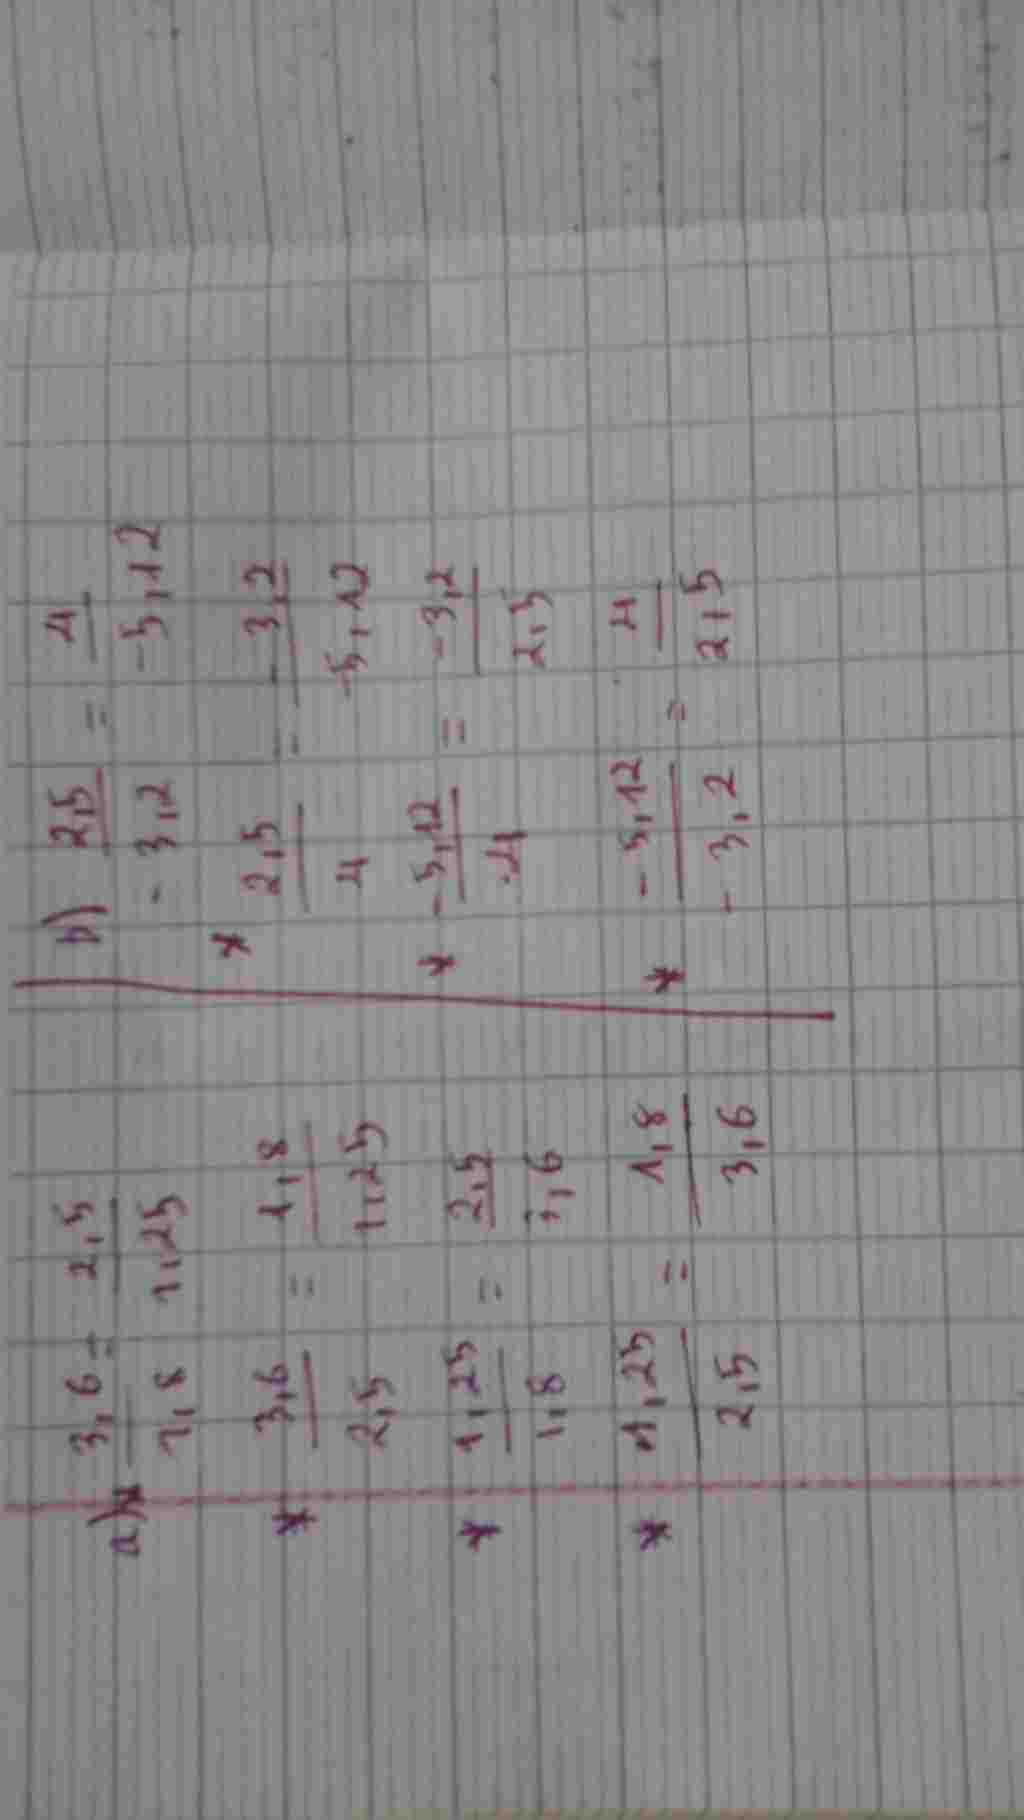 a)* 3,6/1,8 = 2,5/1,25
* 3,6/2,5 = 1,8/1,25
* 1,25/1,8 = 2,5/3,6
* 1,25/2,5 = 1,8/3,6
b) 2,5/-3,2 = 4/-5,12
* 2,5/4 = -3,2/-5,12
* -5,12/4 = -3,2/2,5
* -5,12/-3,2 = 4/2,5